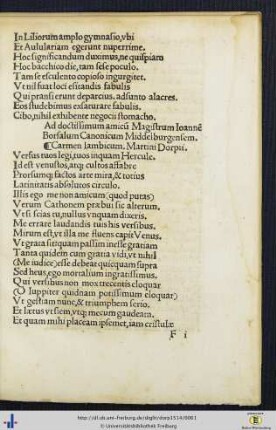 In Liliorum amplo gymnasio, vbi
Et Aululariam egerunt nuperrime.
Hoc significandum duximus, ne quispiam
Hoc bacchico die, tam sese poculo.
Tam se esculento copioso ingurgitet.
Vt nil suat loci essitandis fabulis
Qui pransi erunt deparcius. adsunto alacres.
Eos studebimus exsaturare fabulis.
Cibo, nihil exhibente negocii stomacho.
Ad doctissimum amicū Magistrum Ioannē
Borsalum Canonicum Middelburgensem.
¶ Carmen Iambicum. Martini Dorpii.
Versus tuos legi, tuos inquam Hercule.
Id est venustos, atq; cultos affabre
Prorsumq; factos arte mira, & totius
Latinitatis absolutos circulo.
Illis ego me non amicum (quod putas)
Verum Cathonem præbui sic alterum.
Vt si scias tu, nullus vnquam dixeris.
Me errare laudandis tuis his versibus.
Mirum est, vt illa me fluens capit Venus.
Vt grata sit quam passim inesse gratiam
Tanta quidem cum gratia vidi, vt nihil
(Me iudice) esse debeat quicquam supra
Sed heus, ego mortalium ingratissimus.
Qui versibus non mox trecentis eloquar
(O Iuppiter quidnam potissimum eloquar)
Vt gestiam nunc, & triumphem serio.
Et lætus vt siem, vtq; mecum gaudeam.
Et quam mihi placeam ipsemet, iam cristulæ
F i
http://dl.ub.uni-freiburg.de/diglit/dorp1514/0081
© Universitätsbibliothek Freiburg